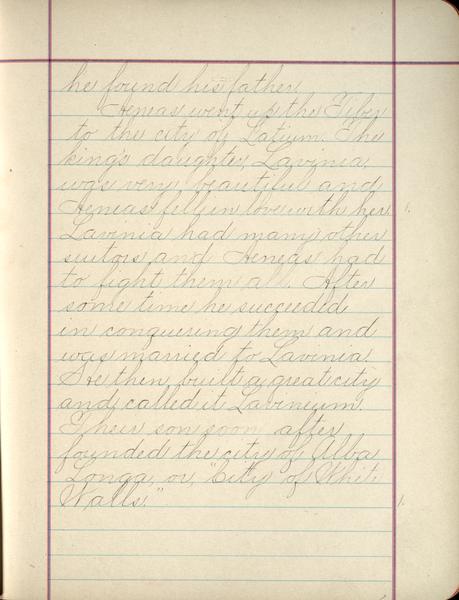 he found his father.
Aeneas went up the Tiber
to the city of Latium. The
king's daughter, Lavinia,
was very beautiful and
Aeneas fell in love with her.
Lavinia had many other
suitors and Aeneas had
to fight them all. After
some time he succeeded
in conquering them and
was married to Lavinia.
He then built a great city
and called it Lavinium.
Their son soon after
founded the city of Alba
Longa, or, "City of White
Walls."